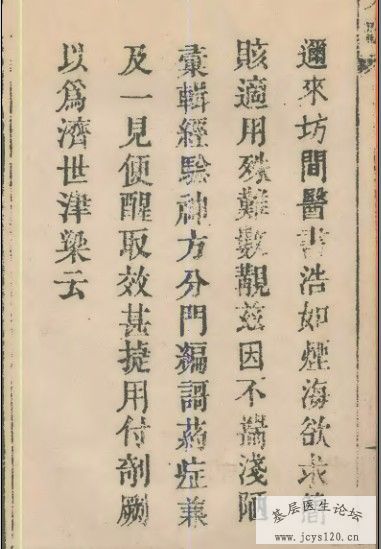 邇來坊間醫書浩如煙海欲求簡
賅適用殊難數覯茲因不揣淺陋
彙輯經驗神方分門編謌葯症兼
及一見便醒取效甚捷用付剞劂
以爲濟世津梁云
基层医生论坛
www.jcys120.cn